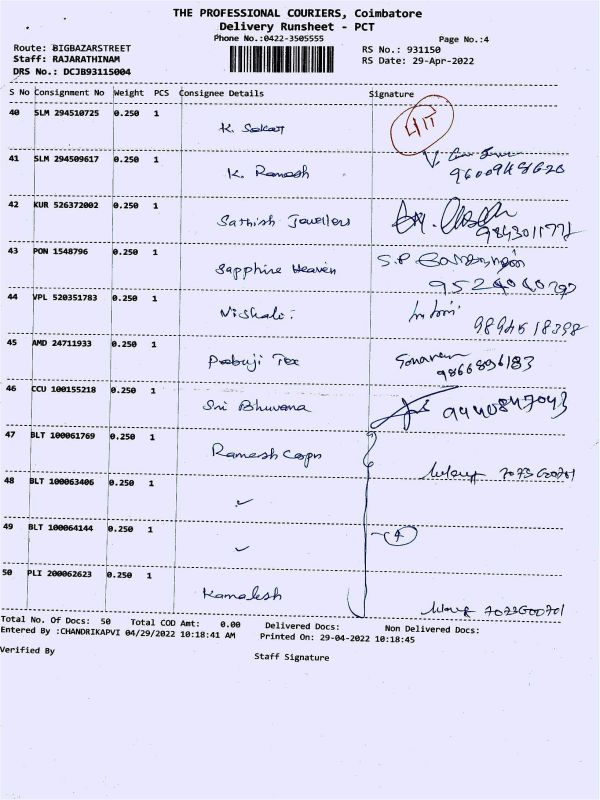 THE PROFESSIONAL COURIERS, Coimbatore
Delivery Runsheet - PCT
Phone No.:0422-3505555
Page No.:4
Route: BIGBAZARSTREET
RS No.: 931150
Staff: RAJARATHINAM
RS Date: 29-Apr-2022
DRS No.: DCJB93115004
S No Consignment No Weight PCS Consignee Details Signature
40 SLM 294510725 0.250 1
K.
41 SLM 294509617 0.250 1
K. Ramesh
42 KUR 526372002 0.250 1
Sathish Jewellers
9843011772
43 PON 1548796 0.250 1
Sapphire Heaven S.P
44 VPL 520351783 0.250 1
9894618398
45 AMD 24711933 0.250 1
Prabuji Tex
9866896183
46 CCU 100155218 0.250 1
Sri Bhuvana 9440847043
47 BLT 100061769 0.250 1
Ramesh Corpn
48 BLT 100063406 0.250 1
49 BLT 100064144 0.250 1
4
50 PLI 200062623 0.250 1
Kamalesh
Total No. Of Docs: 50 Total COD Amt: 0.00 Delivered Docs: Non Delivered Docs:
Entered By :CHANDRIKAPVI 04/29/2022 10:18:41 AM Printed On: 29-04-2022 10:18:45
Verified By
Staff Signature